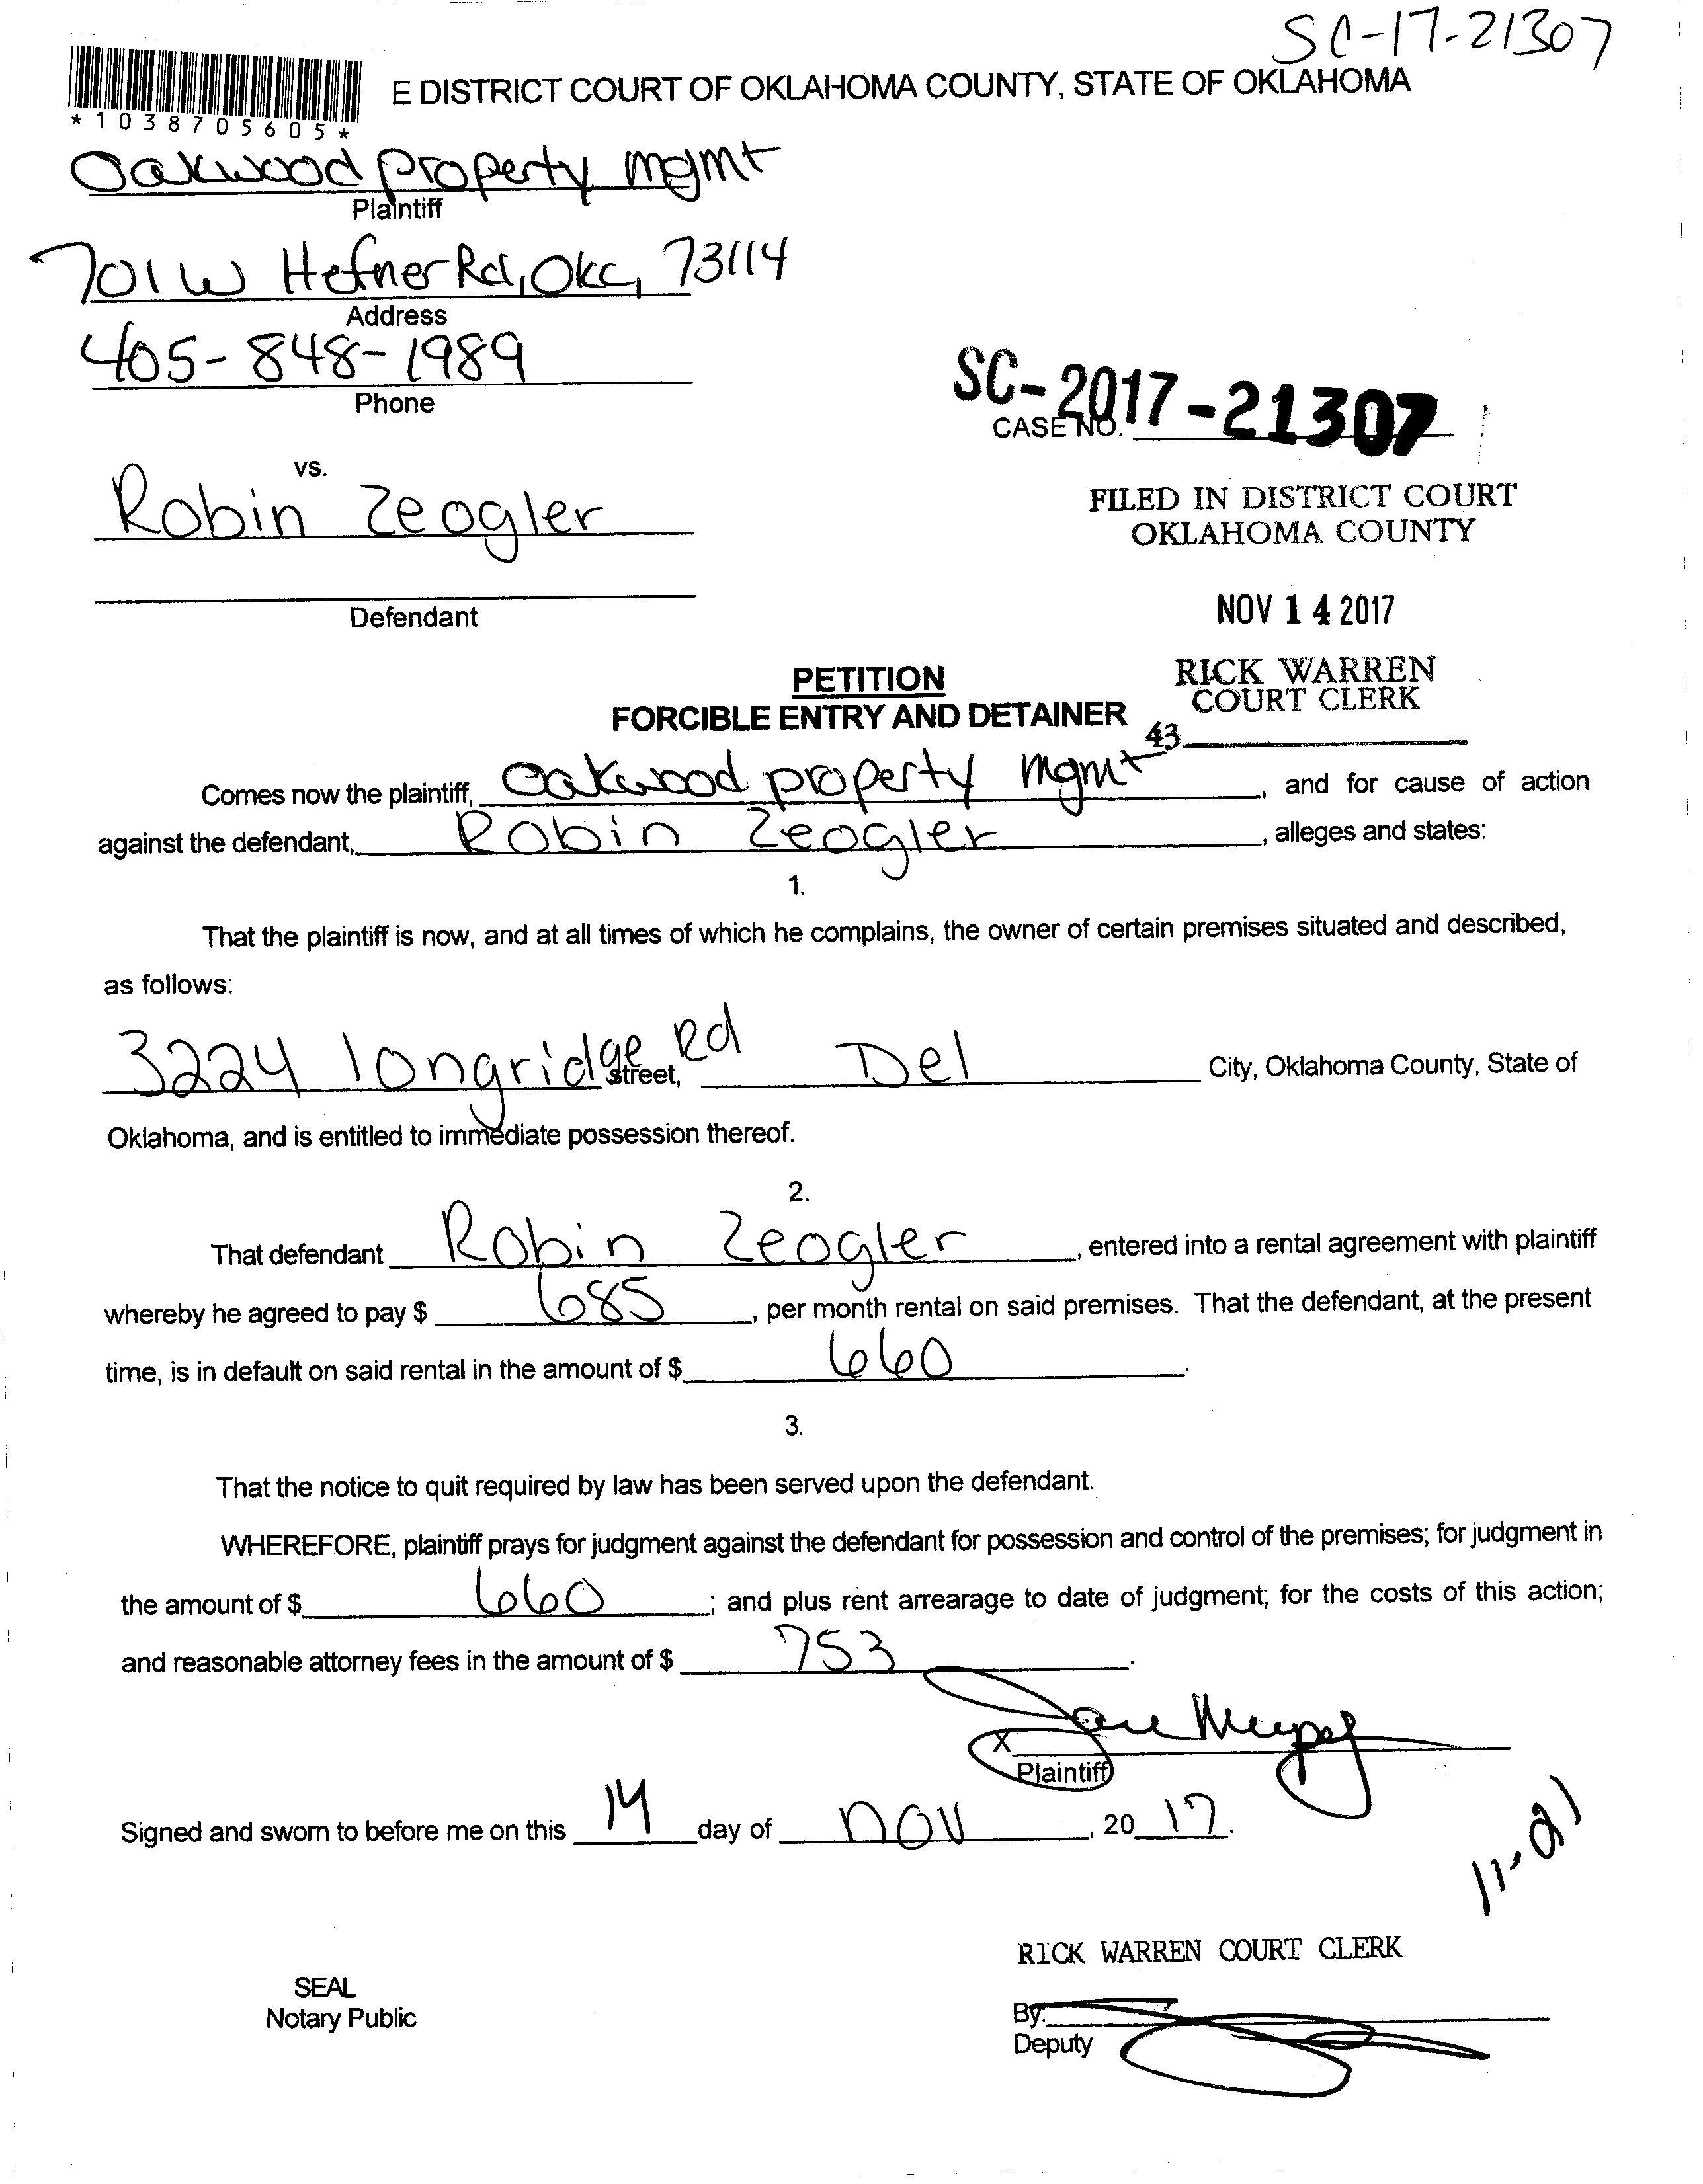 SC-17-21307
E DISTRICT COURT OF OKLAHOMA COUNTY, STATE OF OKLAHOMA
*1038705605*
Oakwood property mgmt
Plaintiff
701 W Hefner Rd, OKC, 73114
Address
405-848-1989
Phone
SC-2017-21307
CASE NO.
vs.
Robin Zeogler
FILED IN DISTRICT COURT
OKLAHOMA COUNTY
Defendant
NOV 14 2017
PETITION
RICK WARREN
COURT CLERK
FORCIBLE ENTRY AND DETAINER
43
Comes now the plaintiff, Oakwood property mgmt, and for cause of action
against the defendant, Robin Zeogler, alleges and states:
1.
That the plaintiff is now, and at all times of which he complains, the owner of certain premises situated and described,
as follows:
3224 longridge Rd street, Del City, Oklahoma County, State of
Oklahoma, and is entitled to immediate possession thereof.
2.
That defendant Robin Zeogler, entered into a rental agreement with plaintiff
whereby he agreed to pay $ 685, per month rental on said premises. That the defendant, at the present
time, is in default on said rental in the amount of $ 660.
3.
That the notice to quit required by law has been served upon the defendant.
WHEREFORE, plaintiff prays for judgment against the defendant for possession and control of the premises; for judgment in
the amount of $ 660; and plus rent arrearage to date of judgment; for the costs of this action;
and reasonable attorney fees in the amount of $ 753.
X
Plaintiff
Signed and sworn to before me on this 14 day of nov, 20 17.
11-21
RICK WARREN COURT CLERK
SEAL
Notary Public
By:
Deputy